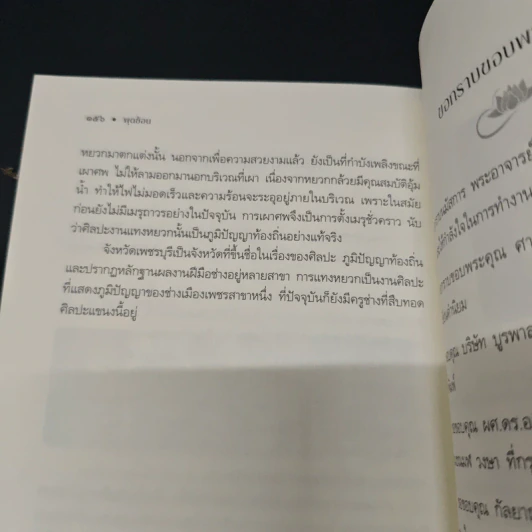 ๑๕๖ • พุดซ้อน
หยวกมาตกแต่งนั้น นอกจากเพื่อความสวยงามแล้ว ยังเป็นที่กำบังเพลิงขณะที่
เผาศพ ไม่ให้ลามออกมานอกบริเวณที่เผา เนื่องจากหยวกกล้วยมีคุณสมบัติอุ้ม
น้ำ ทำให้ไฟไม่มอดเร็วและความร้อนจะระอุอยู่ภายในบริเวณ เพราะในสมัย
ก่อนยังไม่มีเมรุถาวรอย่างในปัจจุบัน การเผาศพจึงเป็นการตั้งเมรุชั่วคราว นับ
ว่าศิลปะงานแทงหยวกนั้นเป็นภูมิปัญญาท้องถิ่นอย่างแท้จริง
จังหวัดเพชรบุรีเป็นจังหวัดที่ขึ้นชื่อในเรื่องของศิลปะ ภูมิปัญญาท้องถิ่น
และปรากฏหลักฐานผลงานฝีมือช่างอยู่หลายสาขา การแทงหยวกเป็นงานศิลปะ
ที่แสดงภูมิปัญญาของช่างเมืองเพชรสาขาหนึ่ง ที่ปัจจุบันก็ยังมีครูช่างที่สืบทอด
ศิลปะแขนงนี้อยู่
ขอกราบขอบพ
พระอาจารย์
กำลังใจในการทำงาน
ราบขอบพระคุณ ศา
คุณ บริษัท บูรพาส
ขอบคุณ ผศ.ดร.อ
วงษา ที่กรุ
ขอบคุณ กัลยาร